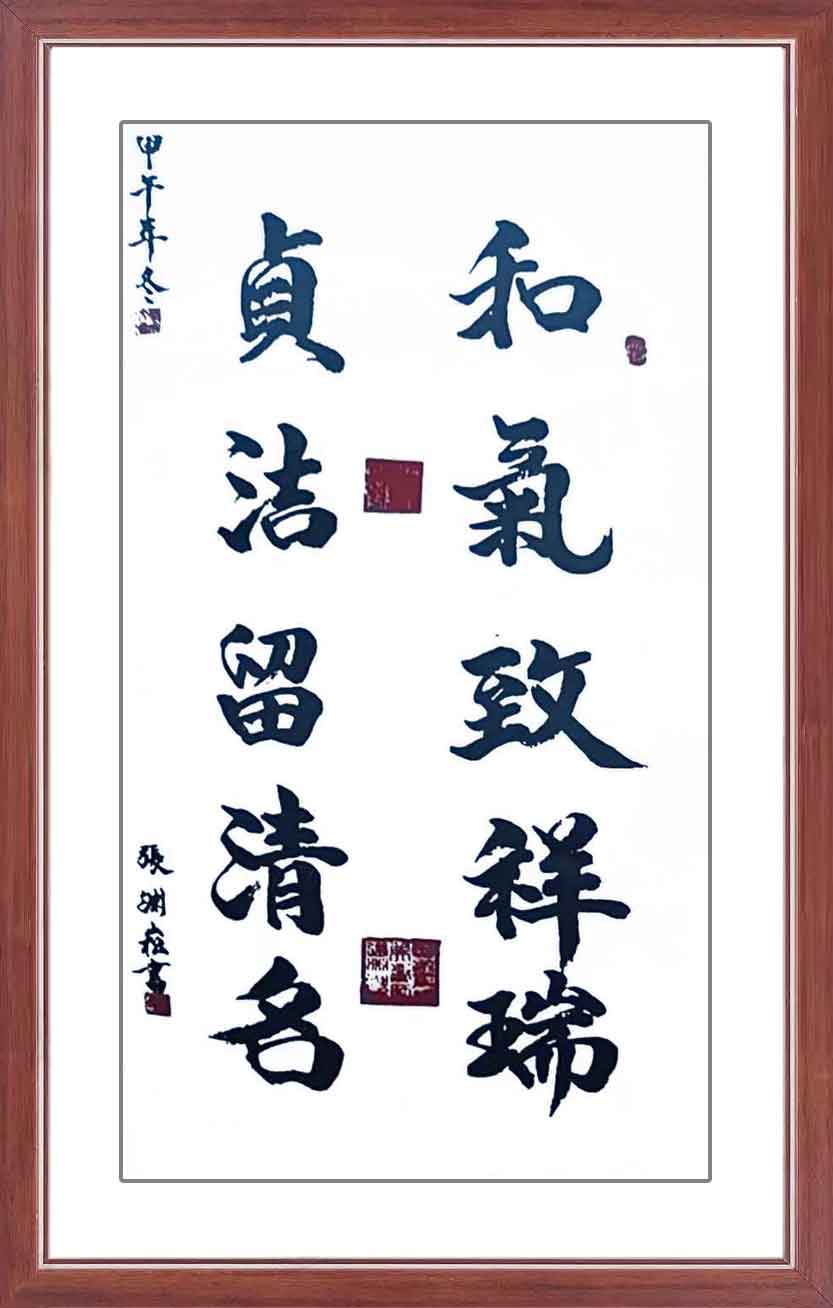 和氣致祥瑞
貞洁留清名
甲午年冬
張渊
書